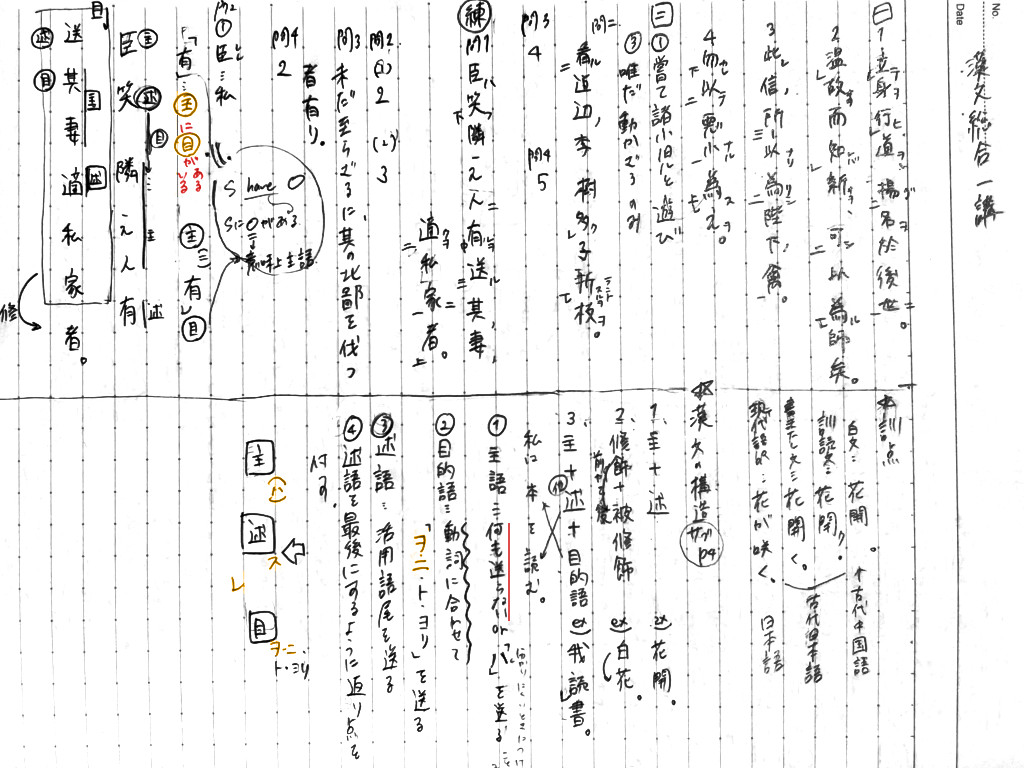 No.
Date
漢文総合一講
一
1 立身行道、揚名於後世。
2 温故而知新、可以為師矣。
3 此信所以為陛下禽。
4 勿以悪小為之。
三
① 嘗て諸小児と遊び
③ 唯だ動かざるのみ
問二
看道辺李樹多子折枝。
問3 4 問4 5
練
問1 臣笑隣之人有送其妻
適私家者。
問2 (1) 2 (2) 3
問3 未だ至らざるに、其の北鄙を伐つ
者有り。
問4 2
問2 ① 臣…私
S have O
SにOがある
意味上主語
「有」… 主に目がある
いる
主 有 目
主 述 目
臣笑隣之人有
送其妻適私家者。
修
訓点
白文… 花開。
訓読文… 花開ク。
書き下し文… 花開く。
現代語訳… 花が咲く。
古代中国語
古代日本語
日本語
漢文の構造 サブP4
1、主+述 ex) 花開。
2、修飾+被修飾 ex) 白花。
3、主+述+目的語 ex) 我読書。
私は本を読む。
① 主語…何も送らない or 「ハ」を送る
② 目的語…動詞に合わせて
「ヲ・ニ・ト・ヨリ」を送る
③ 述語…活用語尾を送る
④ 述語を最後にするように返り点を
付す。
主 (ハ)
述 ス
レ
目 ヲ・ニ・
ト・ヨリ